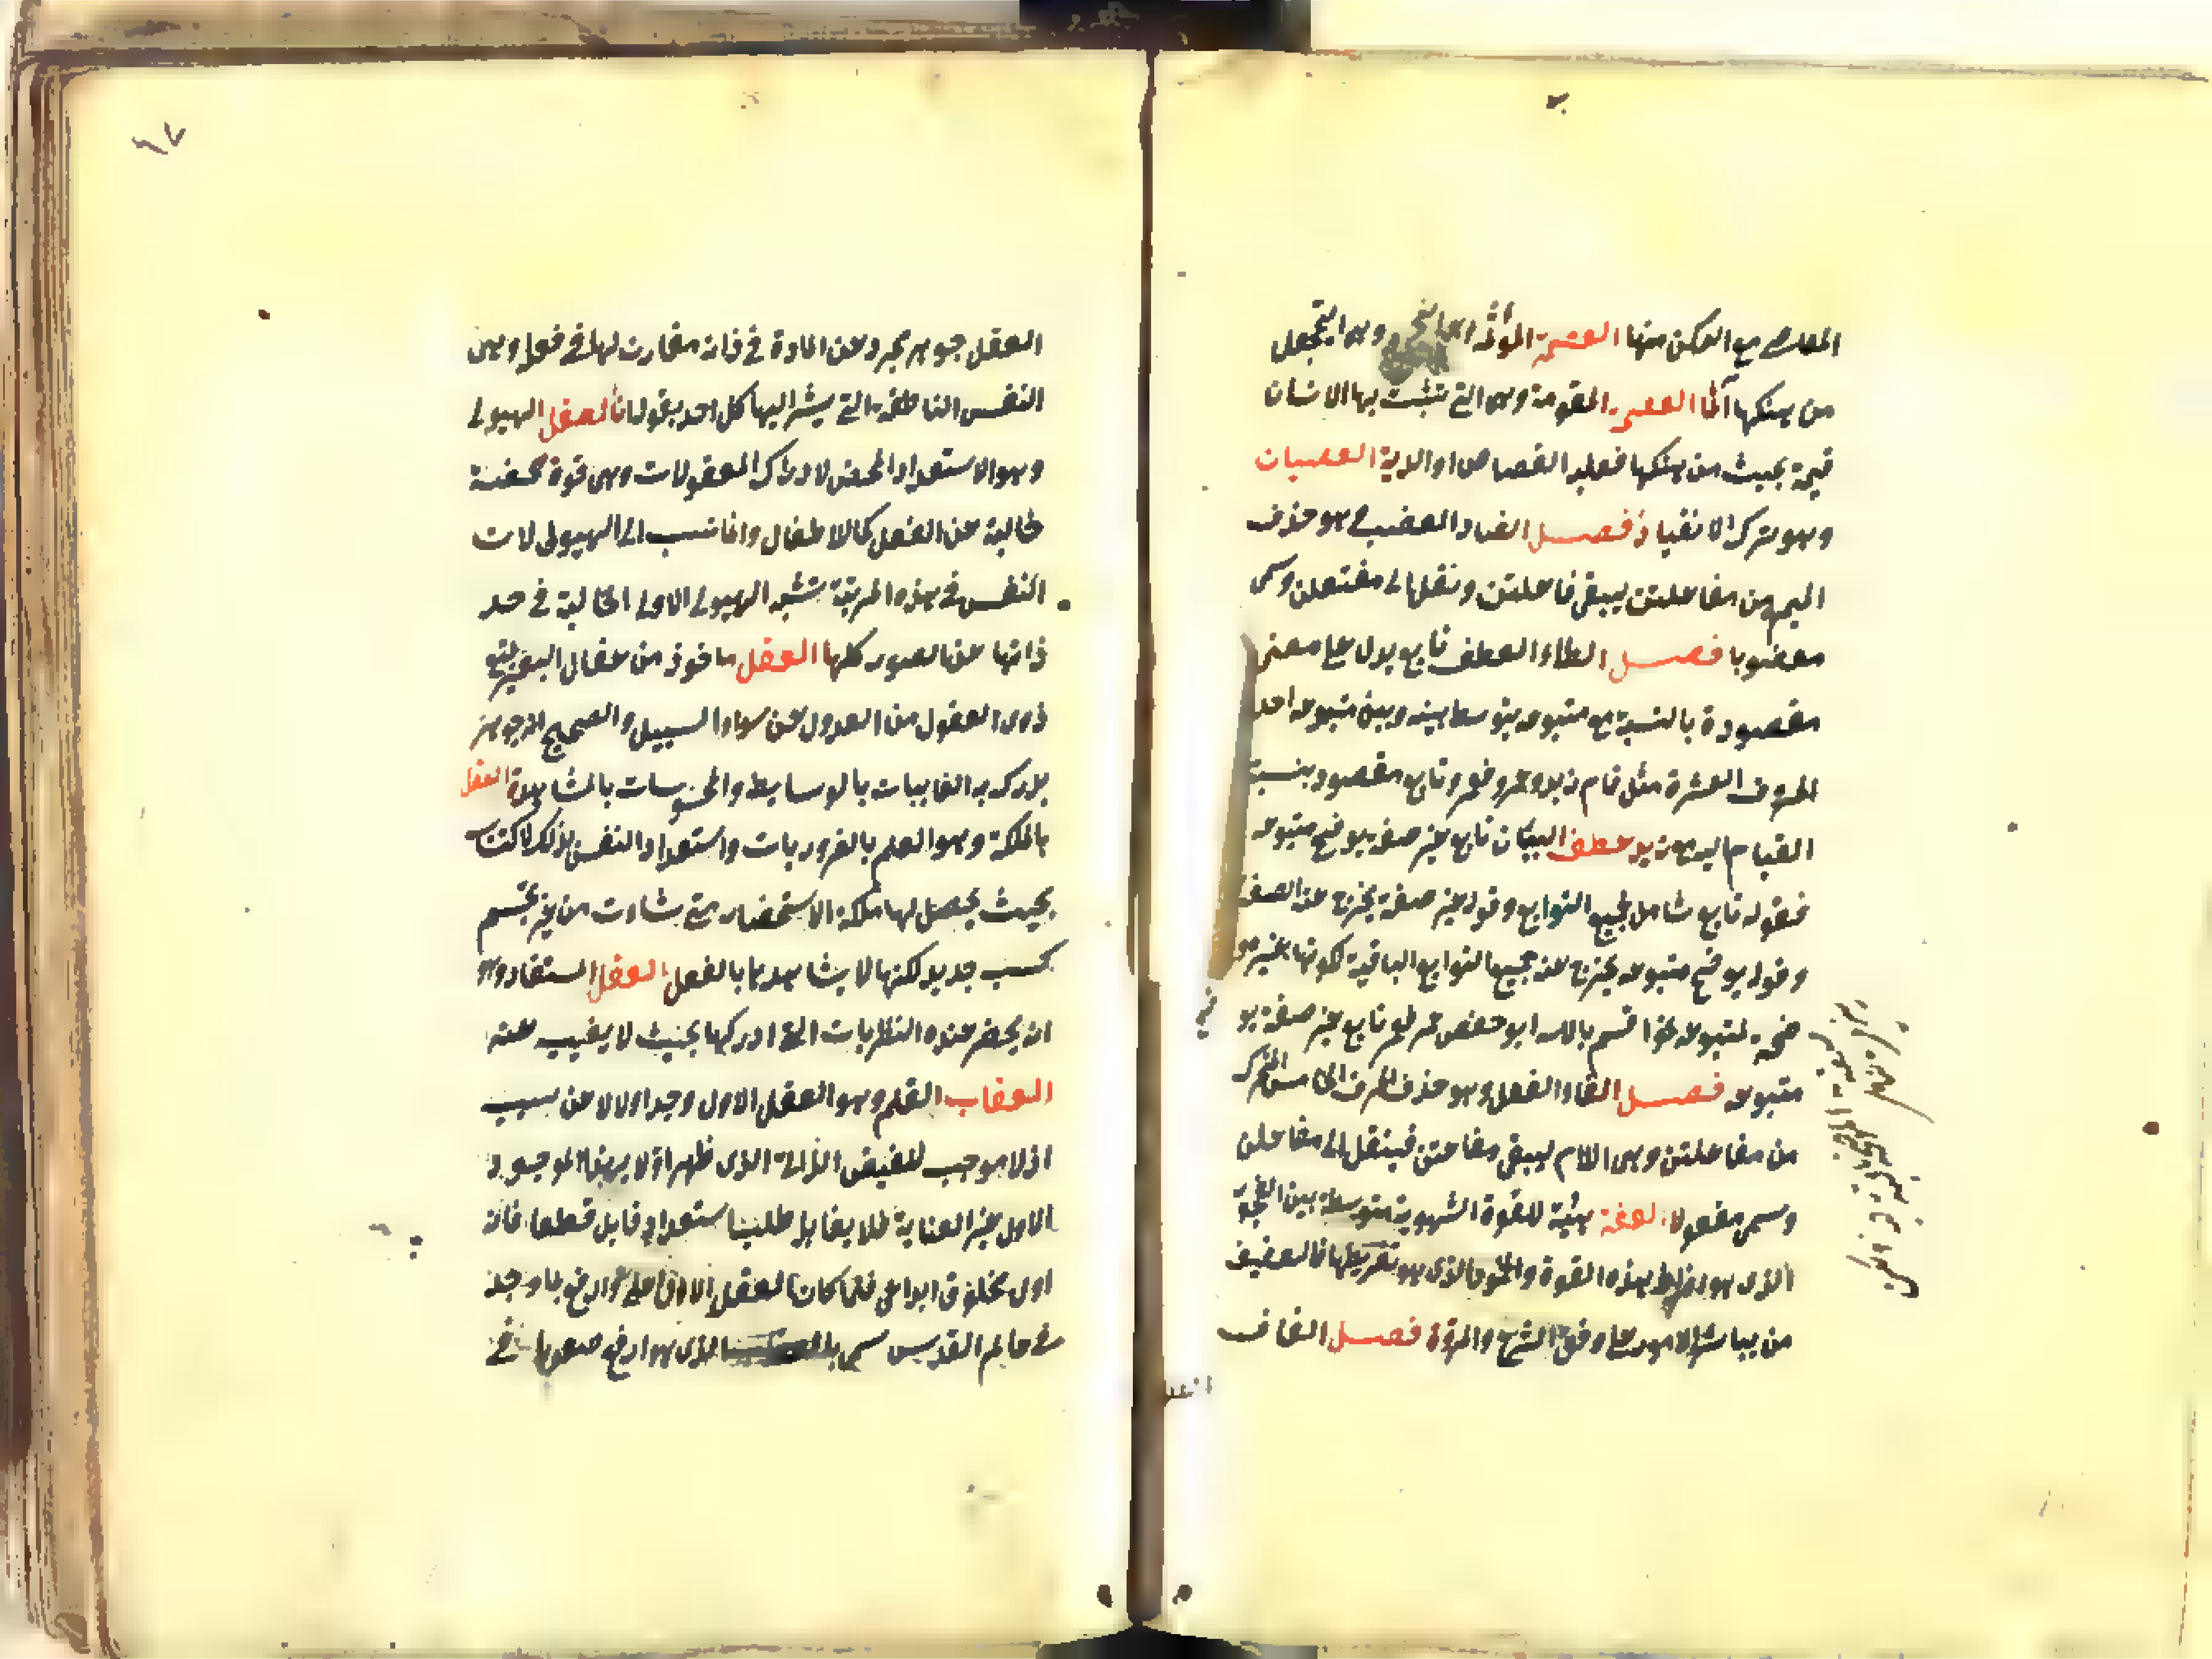 المعاصى مع التمكن منها العصمة المؤثمة وهى التى تجعل
من هتكها آثما العصمة المقومة وهى التى تثبت بها الانسان
قيمة بحيث من هتكها فعليه القصاص او الدية العصيان
وهو ترك الانقياد فصل الضاد العضب هو حذف
الميم من مفاعلتن ليبقى فاعلتن وينقل الى مفتعلن ويسمى
معضوبا فصل الطاء العطف تابع يدل على معنى
مقصودة بالنسبة مع متبوعه يتوسط بينه وبين متبوعه احد
الحروف العشرة مثل قام زيد وعمرو فعمرو تابع مقصود بنسبة
القيام اليه مع زيد عطف البيان تابع غير صفة يوضح متبوعه
فقوله تابع شامل لجميع التوابع وقوله غير صفة يخرج عنه الصفة
وقوله يوضح متبوعه يخرج عنه جميع التوابع الباقية لكونها غير مو
ضحة لمتبوعه نحو اقسم بالله ابو حفص عمر فعمر تابع غير صفة يو
متبوعه فصل القاء الفعل وهو حذف الحرف الخامس المتحرك
من مفاعلتن وهى اللام ليبقى مفاعتن فينقل الى مفاعلن
ويسمى معقولا العفة هيئة للقوة الشهوية متوسطة بين الفجور
الذى هو افراط هذه القوة والخمود الذى هو تفريطها فالعفيف
من يباشر الامور على وفق الشرع والمروة فصل القاف
العقل
٩٧
العقل جوهر مجرد عن المادة فى ذاته مقارن لها فى فعله وهى
النفس الناطقة التى يشير اليها كل احد بقوله انا العقل الهيولى
وهو الاستعداد المحض لادراك المعقولات وهى قوة محضة
خالية عن الفعل كما للاطفال وانما نسب الى الهيولى لان
النفس فى هذه المرتبة تشبه الهيولى الاولى الخالية فى حد
ذاتها عن الصور كلها العقل ماخوذ من عقال البعير يمنع
ذوى العقول من العدول عن سواء السبيل والصحيح انه جوهر
يدرك به الغايبات بالوسايط والمحسوسات بالمشاهدة العقل
بالملكة وهو العلم بالضروريات واستعداد النفس بذلك لاكتساب
بحيث يحصل لها ملكة الاستحضار متى شاءت من غير تجشم
كسب جديد لكنها لا يشاهدها بالفعل العقل المستفاد وهو
ان يحضر عنده النظريات التى ادركها بحيث لا يغيب عنه
العقاب القلم وهو العقل الاول وجد اولا لا عن سبب
اذ لا موجب للفيض الذاتى الذى ظهر اولا بهذا الموجود
الاول غير العناية فلا يقابله طلب استعداد قابل قطعا فانه
اول مخلوق ابداعى فلما كان العقل الاول اعلى وارفع مما وجد
فى عالم القدس سمى بالعقاب الذى هو ارفع صعودا فى